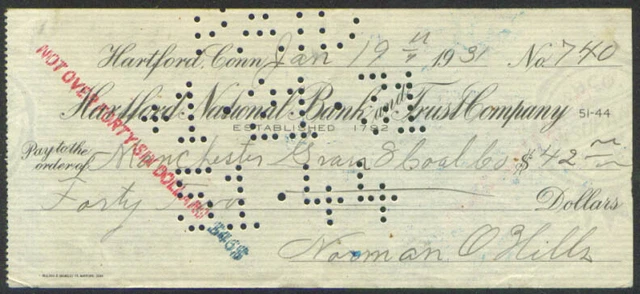 PAID
Hartford, Conn. Jan 19" 1931 No. 740
1-21-31
Hartford National Bank and Trust Company 51-44
ESTABLISHED 1792
Pay to the order of Manchester Grain & Coal Co. $42
Forty Two Dollars
51-44
Norman O Hills
NOT OVER FORTY SIX DOLLARS $46$